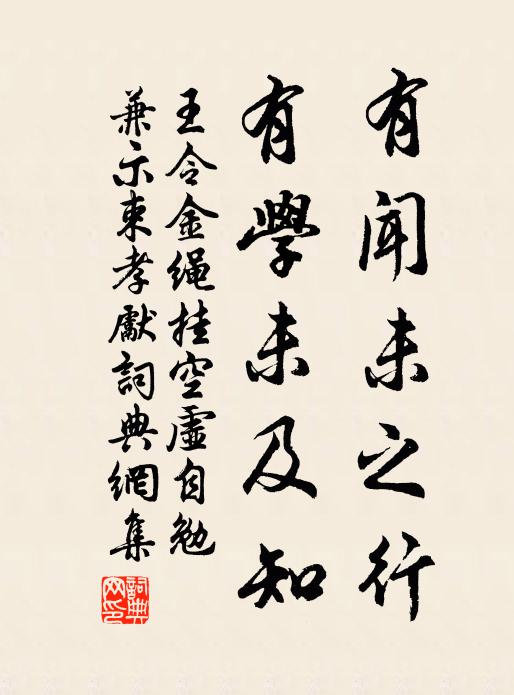 有聞未之行
有學未及知
王令金绳挂空虛自勉
兼示束孝獻詞典網集
詞典网印